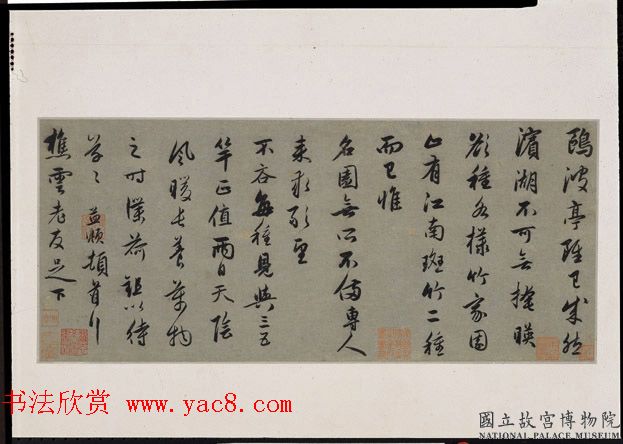 鷗波亭雖已成然
濱湖不可無掩暎
欲種各樣竹家園
止有江南斑竹二種
而已惟
名園無所不備專人
來求
不吝每種見與三五
竿正值兩日天陰
風暖長養萬物
之時僕荷鋤以待
草〻 孟頫頓首
樵雲老友足下
书法欣赏 www.yac8.com
國立故宮博物院
NATIONAL PALACE MUSEUM